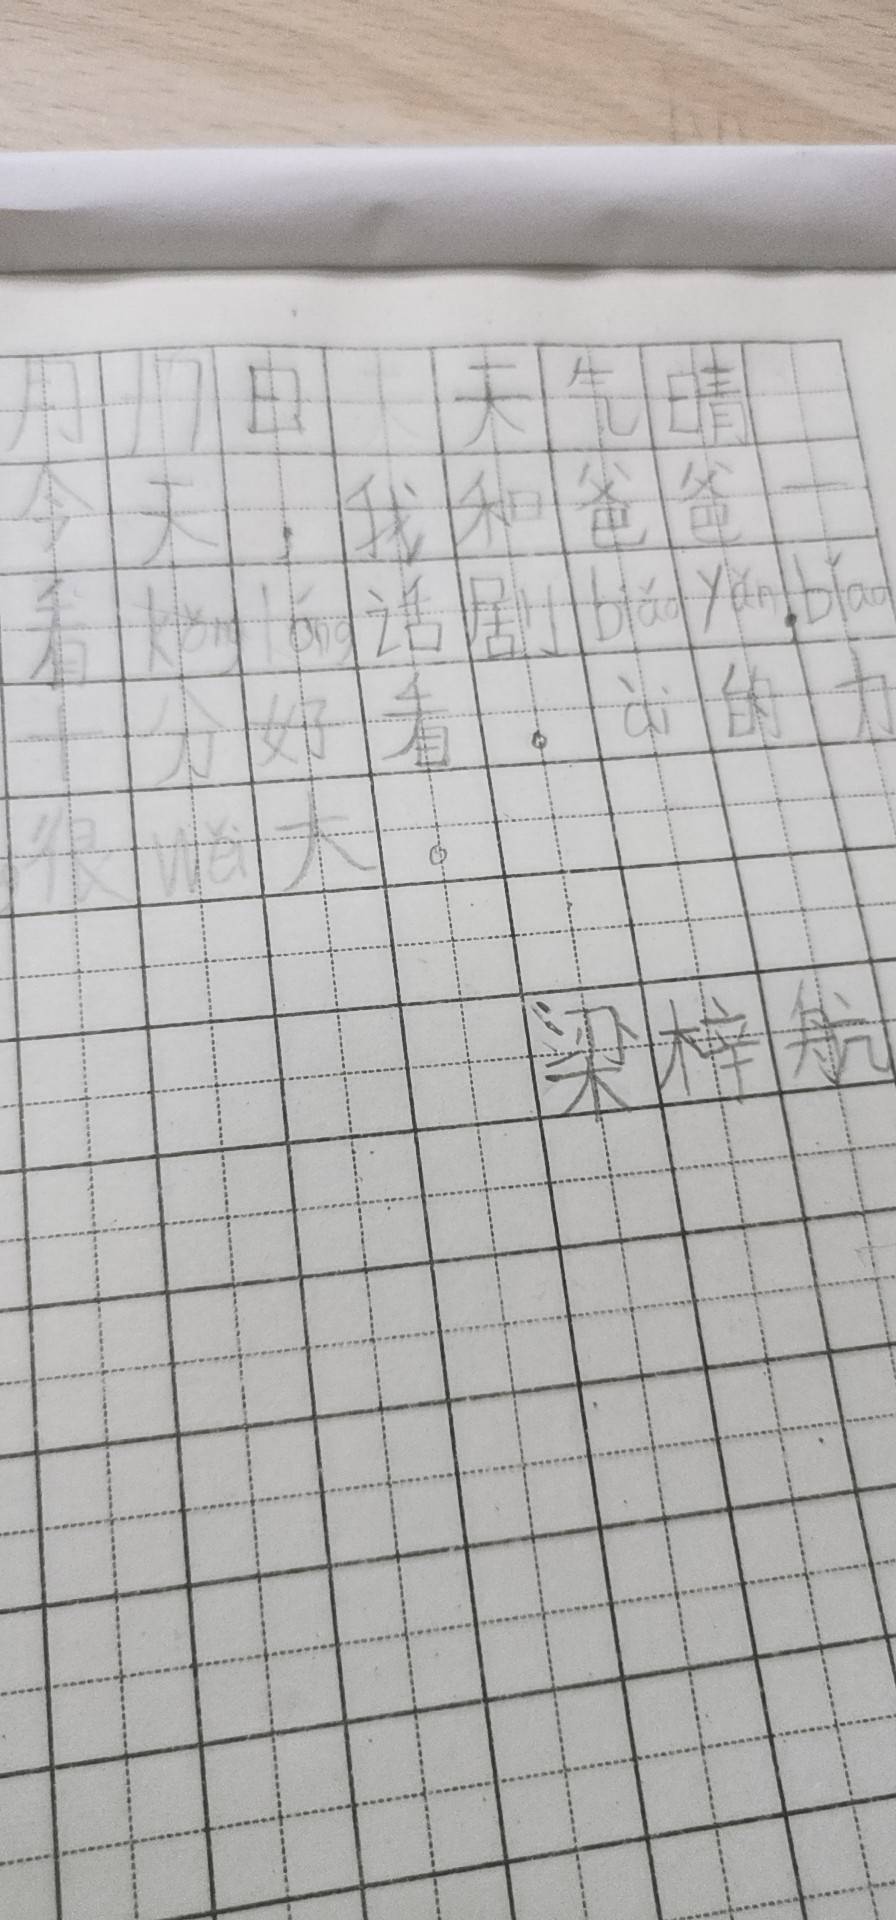 月17日 天气晴
今天，我和爸爸一
看kǒng lóng话剧biǎo yǎn，biǎo
十分好看。ài的力
很wěi大。
梁梓航